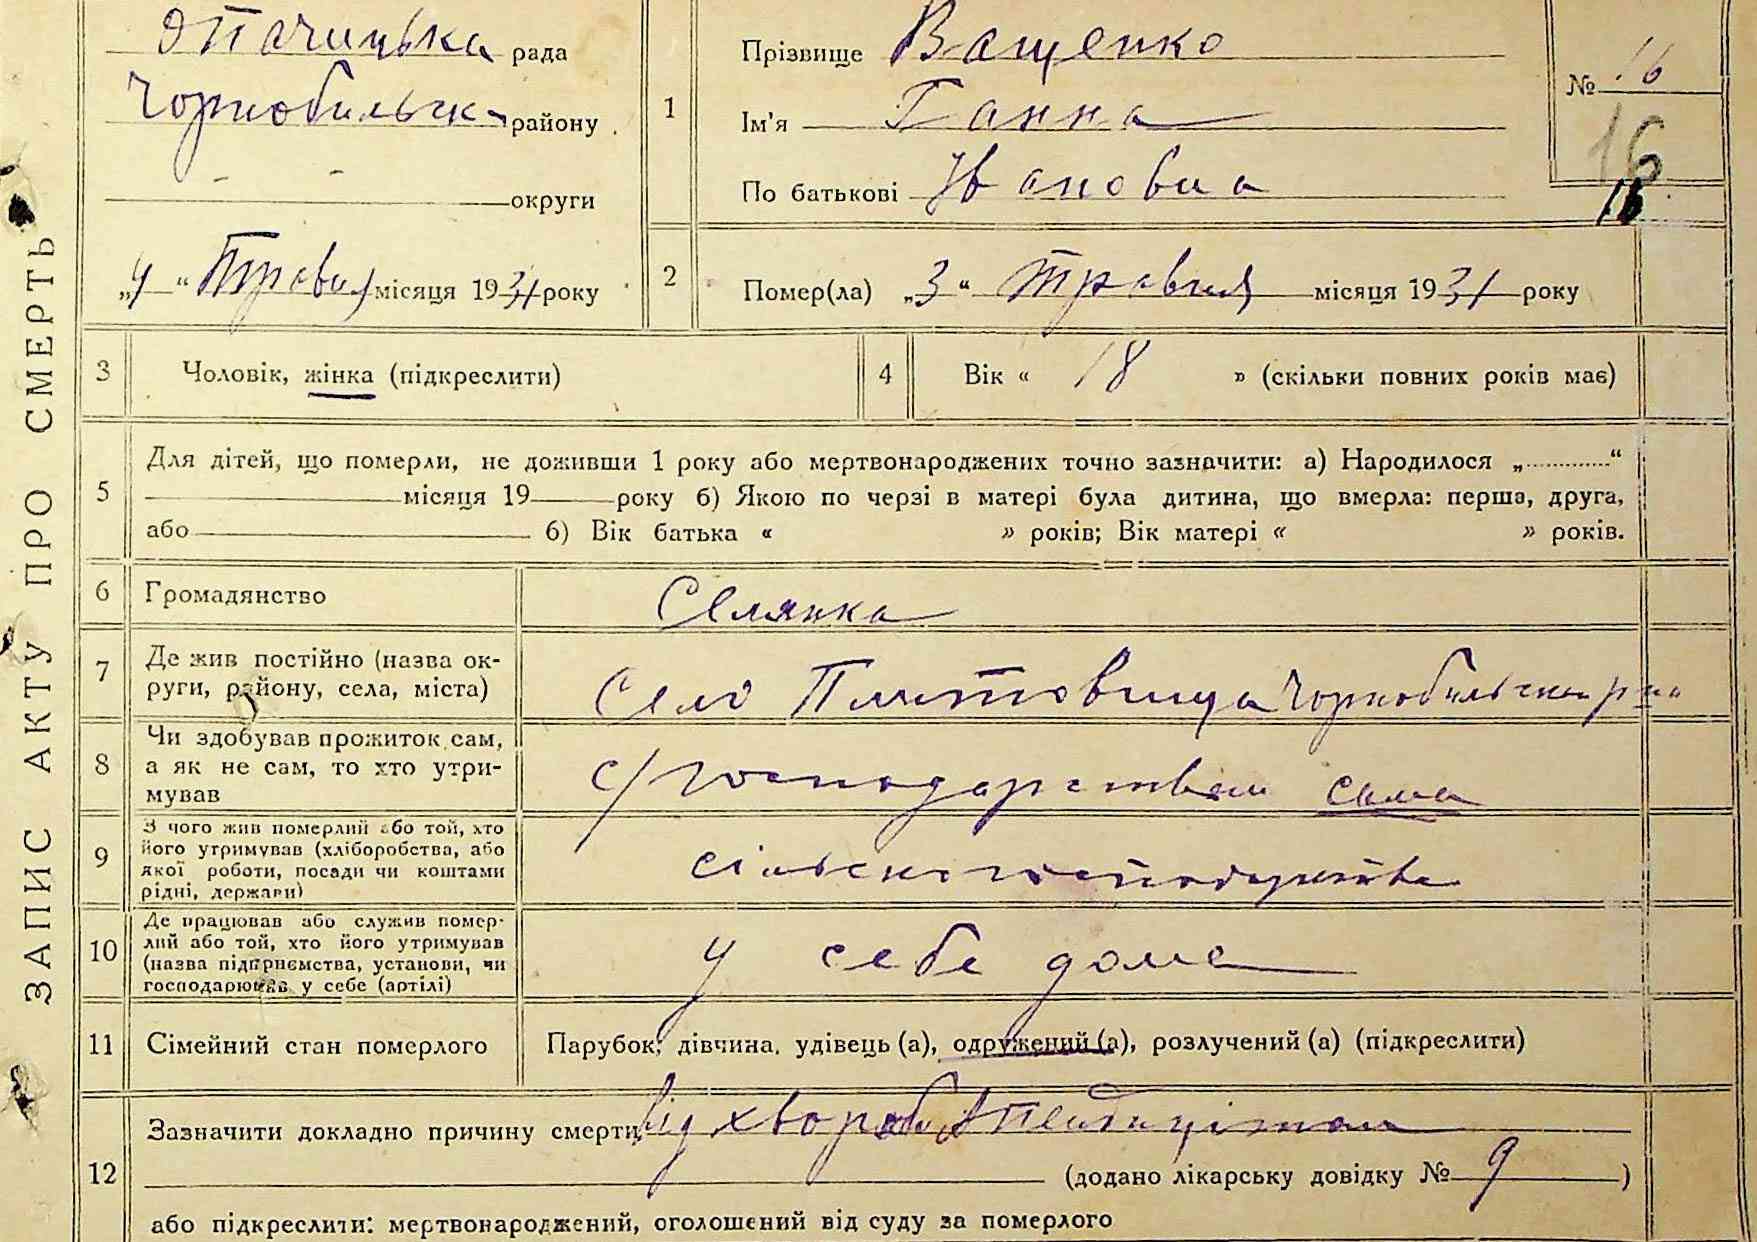 Опачицька рада
Чорнобильск району
округи
„4“ Травня місяця 1931 року
1
Прізвище Ващенко
Ім'я Ганна
По батькові Івановна
№ 16
16
16
2 Помер(ла) „3“ травня місяця 1931 року
ЗАПИС АКТУ ПРО СМЕРТЬ
3 Чоловік, жінка (підкреслити)
4 Вік « 18 » (скільки повних років має)
5 Для дітей, що померли, не доживши 1 року або мертвонароджених точно зазначити: а) Народилося „............“
місяця 19 року б) Якою по черзі в матері була дитина, що вмерла: перша, друга,
або б) Вік батька « » років; Вік матері « » років.
6 Громадянство Селянка
7 Де жив постійно (назва ок-
руги, району, села, міста) Село Плютовища Чорнобильськ р-на
8 Чи здобував прожиток сам,
а як не сам, то хто утри-
мував с/господарством сама
9 З чого жив померлий або той, хто
його утримував (хліборобства, або
якої роботи, посади чи коштами
рідні, держави) сільського господарства
10 Де працював або служив помер-
лий або той, хто його утримував
(назва підприємства, установи, чи
господарював у себе (артілі) у себе доме
11 Сімейний стан померлого Парубок, дівчина, удівець (а), одружений (а), розлучений (а) (підкреслити)
12 Зазначити докладно причину смерти від хвороби Апендицітом
(додано лікарську довідку № 9 )
або підкреслити: мертвонароджений, оголошений від суду за померлого